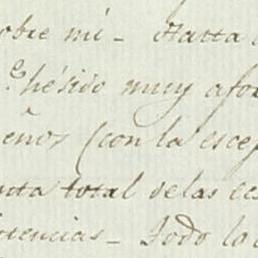 sobre mí_ Hasta
he sido muy afor
eños (con la escep
nta total de las
uencias_ Todo lo